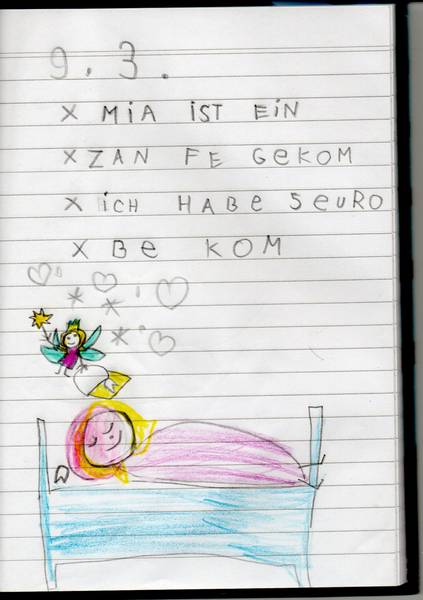 9. 3.
X MiA iST EiN
X ZAN FE GeKOM
X iCH HABe 5 euRO
X Be KOM